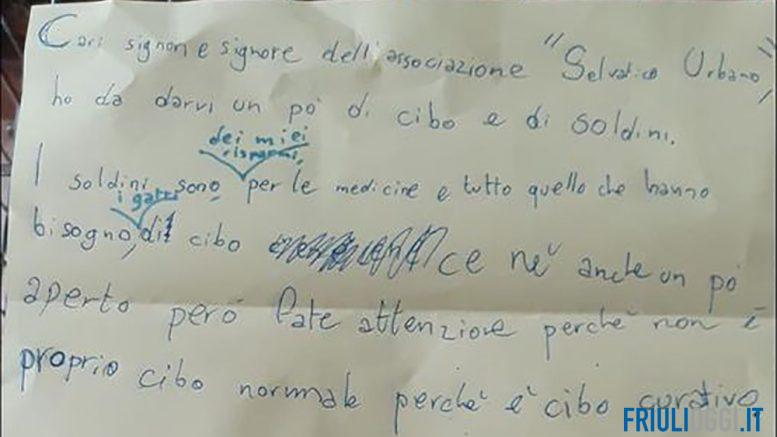 Cari signori e signore dell'associazione "Selvatico Urbano",
ho da darvi un pò di cibo e di soldini.
dei miei
risparmi,
I soldini sono per le medicine e tutto quello che hanno
i gatti
bisogno, di cibo ce né anche un pò
aperto però fate attenzione perchè non è
proprio cibo normale perchè è cibo curativo
FRIULIOGGI.IT